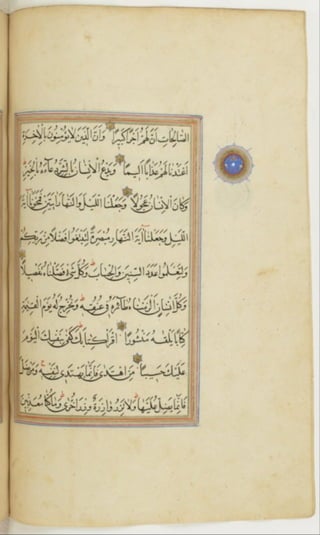 الصَّالِحَاتِ أَنَّ لَهُمْ أَجْرًا كَبِيرًا وَأَنَّ الَّذِينَ لَا يُؤْمِنُونَ بِالْآخِرَةِ
أَعْتَدْنَا لَهُمْ عَذَابًا أَلِيمًا وَيَدْعُ الْإِنْسَانُ بِالشَّرِّ دُعَاءَهُ بِالْخَيْرِ
وَكَانَ الْإِنْسَانُ عَجُولًا وَجَعَلْنَا اللَّيْلَ وَالنَّهَارَ آيَتَيْنِ فَمَحَوْنَا آيَةَ
اللَّيْلِ وَجَعَلْنَا آيَةَ النَّهَارِ مُبْصِرَةً لِتَبْتَغُوا فَضْلًا مِنْ رَبِّكُمْ
وَلِتَعْلَمُوا عَدَدَ السِّنِينَ وَالْحِسَابَ وَكُلَّ شَيْءٍ فَصَّلْنَاهُ تَفْصِيلًا
وَكُلَّ إِنْسَانٍ أَلْزَمْنَاهُ طَائِرَهُ فِي عُنُقِهِ وَنُخْرِجُ لَهُ يَوْمَ الْقِيَامَةِ
كِتَابًا يَلْقَاهُ مَنْشُورًا اقْرَأْ كِتَابَكَ كَفَى بِنَفْسِكَ الْيَوْمَ
عَلَيْكَ حَسِيبًا مَنِ اهْتَدَى فَإِنَّمَا يَهْتَدِي لِنَفْسِهِ وَمَنْ ضَلَّ
فَإِنَّمَا يَضِلُّ عَلَيْهَا وَلَا تَزِرُ وَازِرَةٌ وِزْرَ أُخْرَى وَمَا كُنَّا مُعَذِّبِينَ